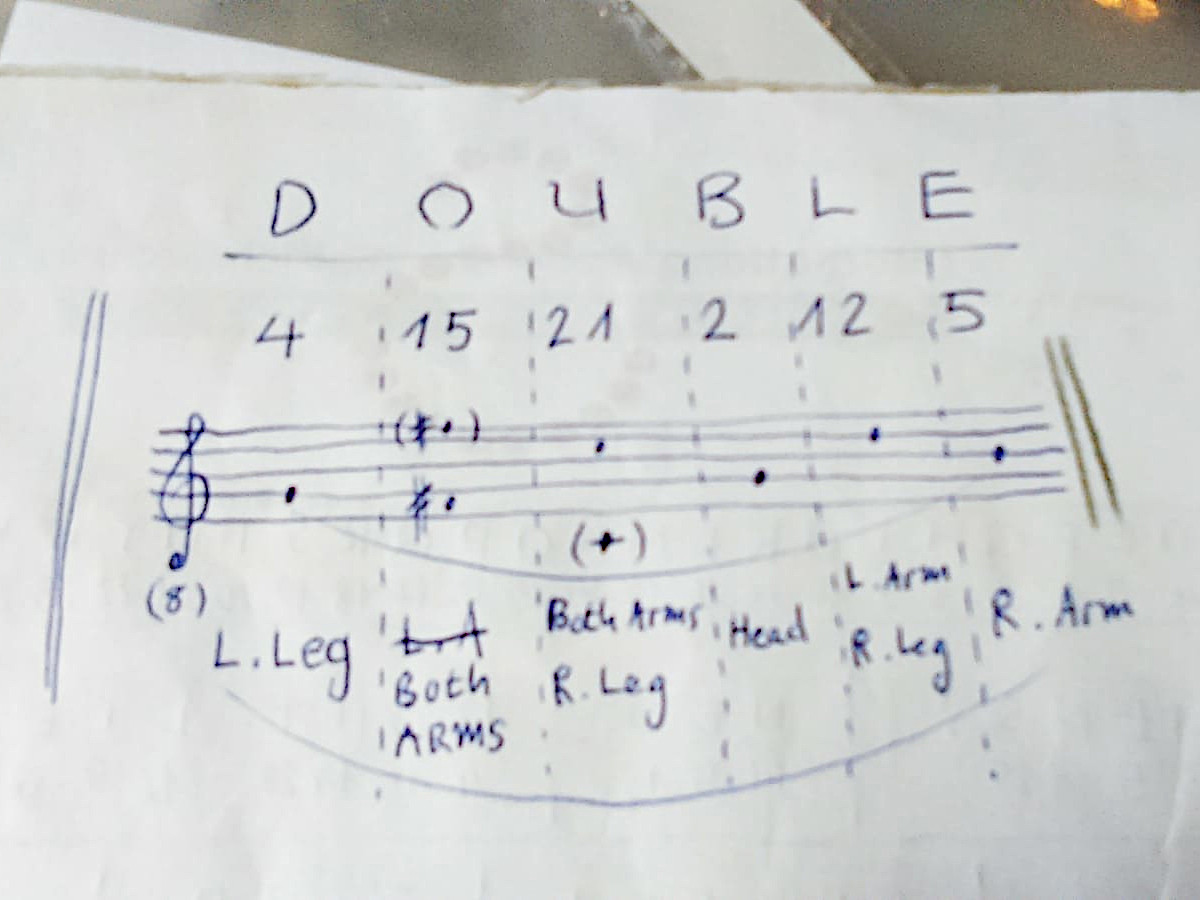 D O U B L E
4 15 21 2 12 5
(8)
(+)
L. Leg L.A Both ARMS
Both Arms R. Leg
Head
L. Arm R. Leg
R. Arm